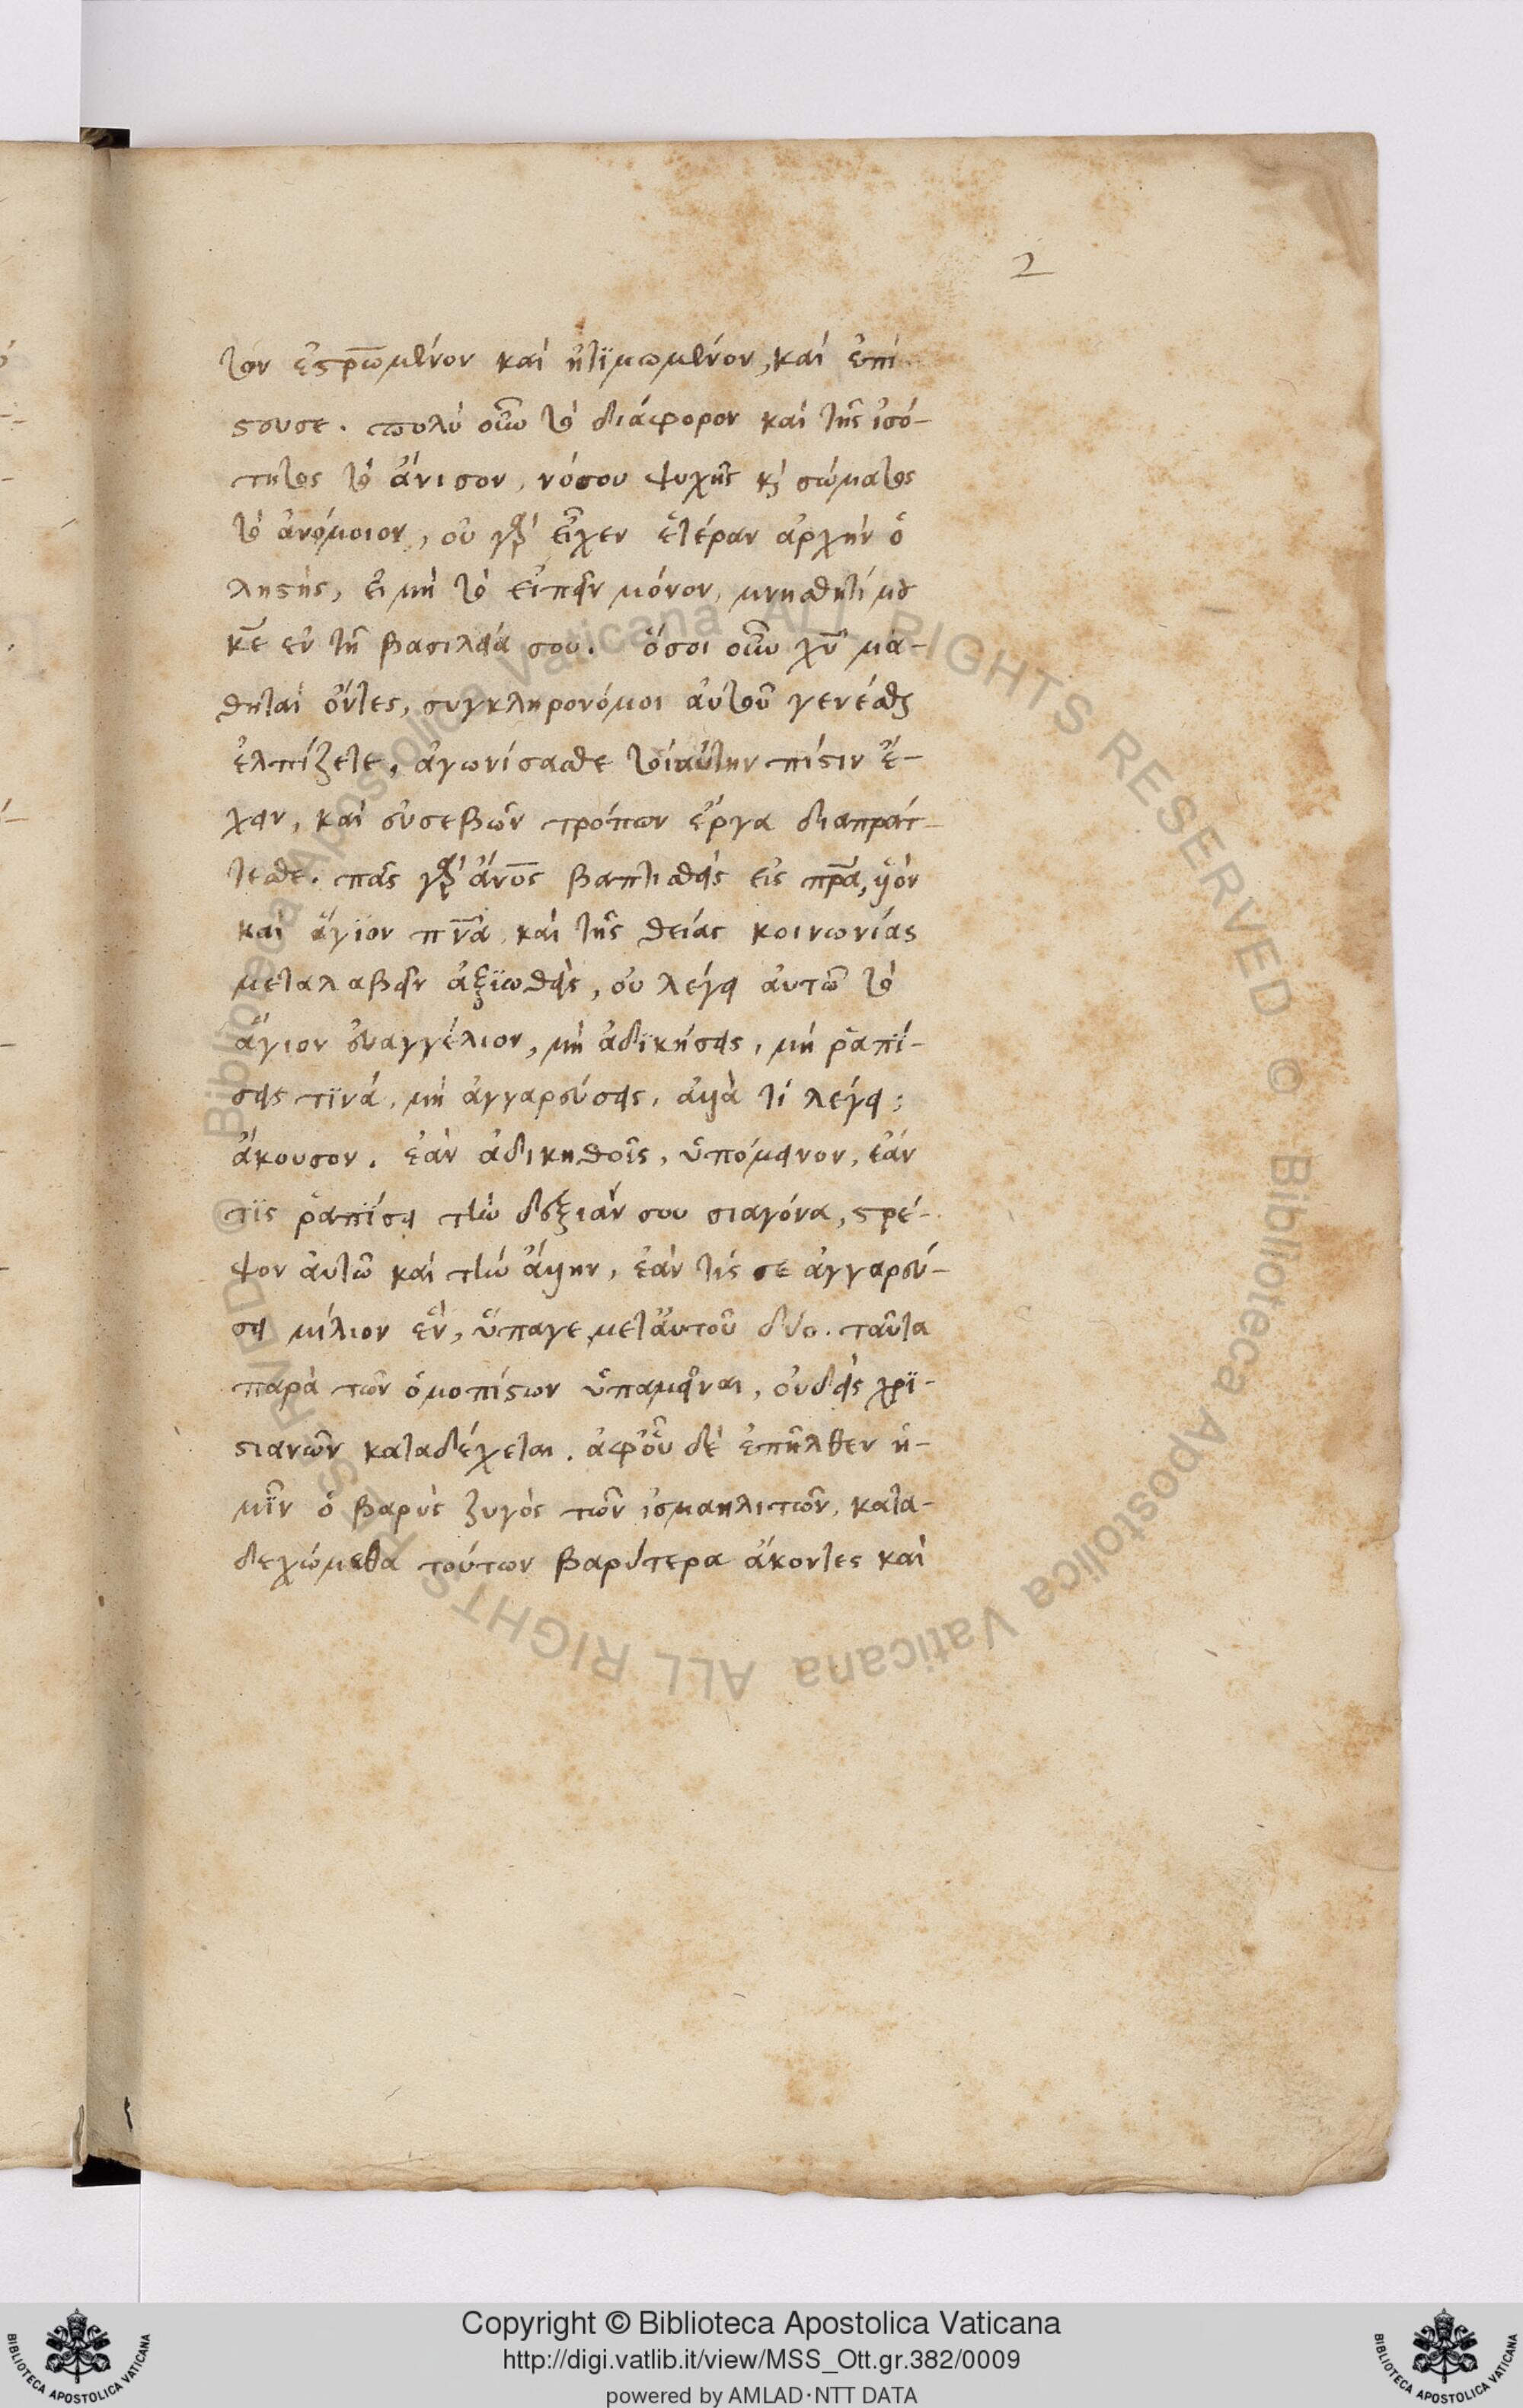 2
τὸν ἐσρ̅ωμένον καὶ ἠτϊμωμένον, καὶ ἐπί
στουσε. πολὺ οὖν τὸ διάφορον καὶ τῆς ἰσό-
τητος τὸ ἄνισον, νόσου ψυχῆς κ̀ σώματος
τὸ ἀνόμοιον, οὐ γὰρ εἶχεν ἑτέραν ἀρχὴν ὁ
ληστὴς, εἰ μὴ τὸ εἰπεῖν μόνον, μνήσθητί μου
κε̅ ἐν τῆ βασιλεία σου. ὅσοι οὖν χυ̅ μα-
θηταὶ ὄντες, συγκληρονόμοι αὐτοῦ γενέσθαι
ἐλπίζετε, ἀγωνίσασθε τοιαύτην πίστιν ἔ-
χειν, καὶ εὐσεβῶν τρόπων ἔργα διαπράτ-
τεσθε. πᾶς γὰρ ἄνο̅ς βαπτισθεὶς εἰς πρ̅α, ὑὸν
καὶ ἅγϊον πν̅α, καὶ τῆς θείας κοινωνίας
μεταλαβεῖν ἀξϊωθεὶς, οὐ λέγει αὐτῶ τὸ
ἅγιον εὐαγγέλιον, μὴ ἀδϊκήσεις, μὴ ῥαπί-
σεις τϊνά, μὴ ἀγγαρεύσεις, ἀλλὰ τί λέγει;
ἄκουσον. ἐὰν ἀδικηθοῖς, ὑπόμεινον, ἐάν
τϊς ῥαπίσει τὴν δεξιάν σου σιαγόνα, στρέ-
ψον αὐτῶ καὶ τὴν ἄλλην, ἐάν τίς σε ἀγγαρεύ-
σει μίλιον ἓν, ὕπαγε μετ' αὐτοῦ δύο. ταῦτα
παρὰ τῶν ὁμοπίστων ὑπαμεῖναι, οὐδεὶς χρϊ-
στιανῶν καταδέχεται. ἀφ' οὗ δὲ ἐπῆλθεν ἡ-
μῖν ὁ βαρὺς ζυγὸς τῶν ἰσμαηλιτῶν, κατα-
δεχώμεθα τούτων βαρύτερα ἄκοντες καὶ
Copyright © Biblioteca Apostolica Vaticana
http://digi.vatlib.it/view/MSS_Ott.gr.382/0009
powered by AMLAD·NTT DATA
BIBLIOTECA APOSTOLICA VATICANA
BIBLIOTECA APOSTOLICA VATICANA
© Biblioteca Apostolica Vaticana ALL RIGHTS RESERVED © Biblioteca Apostolica Vaticana ALL RIGHTS RESERVED